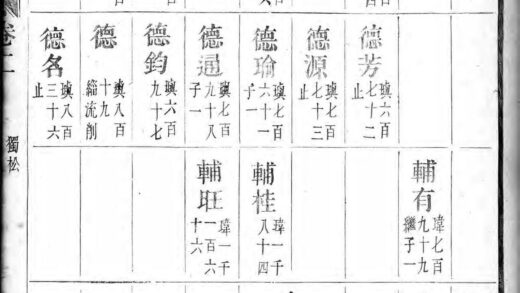 德芳
璵六百
七十二
止
德源
璵七百
七十三
止
德瑜
璵七百
六十一
子一
德逼
璵七百
九十八
子一
德鈞
璵六百
九十七
德
璵八百
十九
緇流削
德名
璵八百
三十六
止
卷二
獨松
輔有
瑋七百
九十九
繼子一
輔桂
瑋一千
八十四
輔旺
瑋一千
一百六
十六